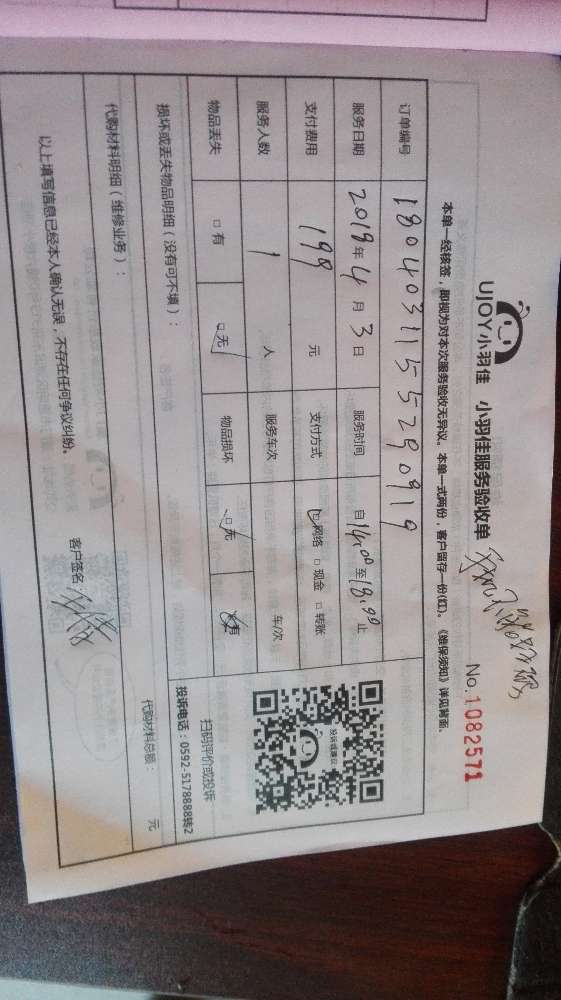 UJOY小羽佳 小羽佳服务验收单
No.1082571
本单一经核签，即视为对本次服务验收无异议。本单一式两份，客户留存一份(红)。《维保须知》详见背面。
订单编号 1804031155290919
服务日期 2018年4月3日 服务时间 自14:00至18:00止
支付费用 198元 支付方式 网络 现金 转账
服务人数 1人 服务车次 车/次
物品丢失 有 无 物品损坏 无 有
投诉或建议
扫码评价或投诉
投诉电话：0592-5178888转2
损坏或丢失物品明细（没有可不填）：
代购材料明细（维修业务）：
代购材料总额： 元
以上填写信息已经本人确认无误，不存在任何争议纠纷。
客户签名：